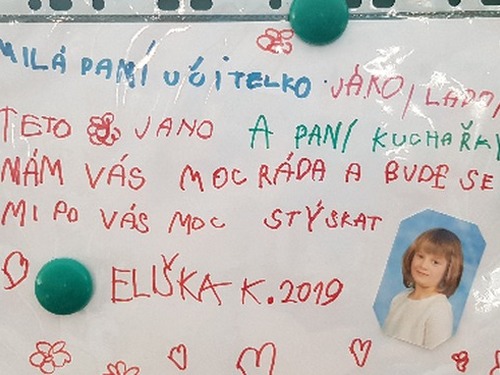 MILÁ PANÍ UČITELKO JÁKO, LADO,
TETO JANO A PANÍ KUCHAŘKY
MÁM VÁS MOC RÁDA A BUDE SE
MI PO VÁS MOC STÝSKAT
ELIŠKA K. 2019